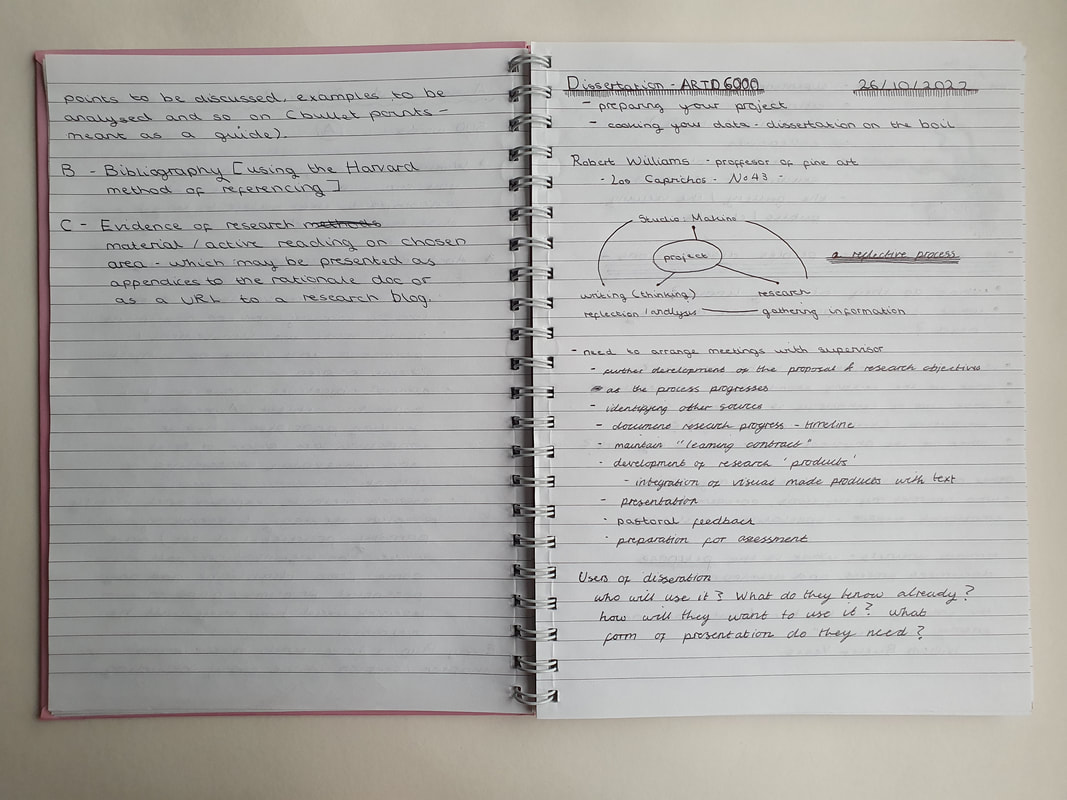 points to be discussed, examples to be
analysed and so on (bullet points -
meant as a guide).
B - Bibliography [using the Harvard
method of referencing]
C - Evidence of research methods
material / active reading on chosen
area - which may be presented as
appendices to the rationale doc or
as a URL to a research blog.
Dissertation - ARTD6000 26/10/2022
- preparing your project
- cooking your data - dissertation on the boil
Robert Williams - proffesor of fine art
- Los Caprichos - No43 -
Studio Making
project
a reflective process
writing (thinking) research
reflection / analysis gathering information
- need to arrange meetings with supervisor
- further development of the proposal & research objectives
as the process progresses
- identifying other sources
- document research progress - timeline
- maintain "learning contract"
- development of research 'products'
- integration of visual made products with text
- presentation
- pastoral feedback
- preparation for assessment
Users of disseration
who will use it? What do they know already?
how will they want to use it? what
form of presentation do they need?